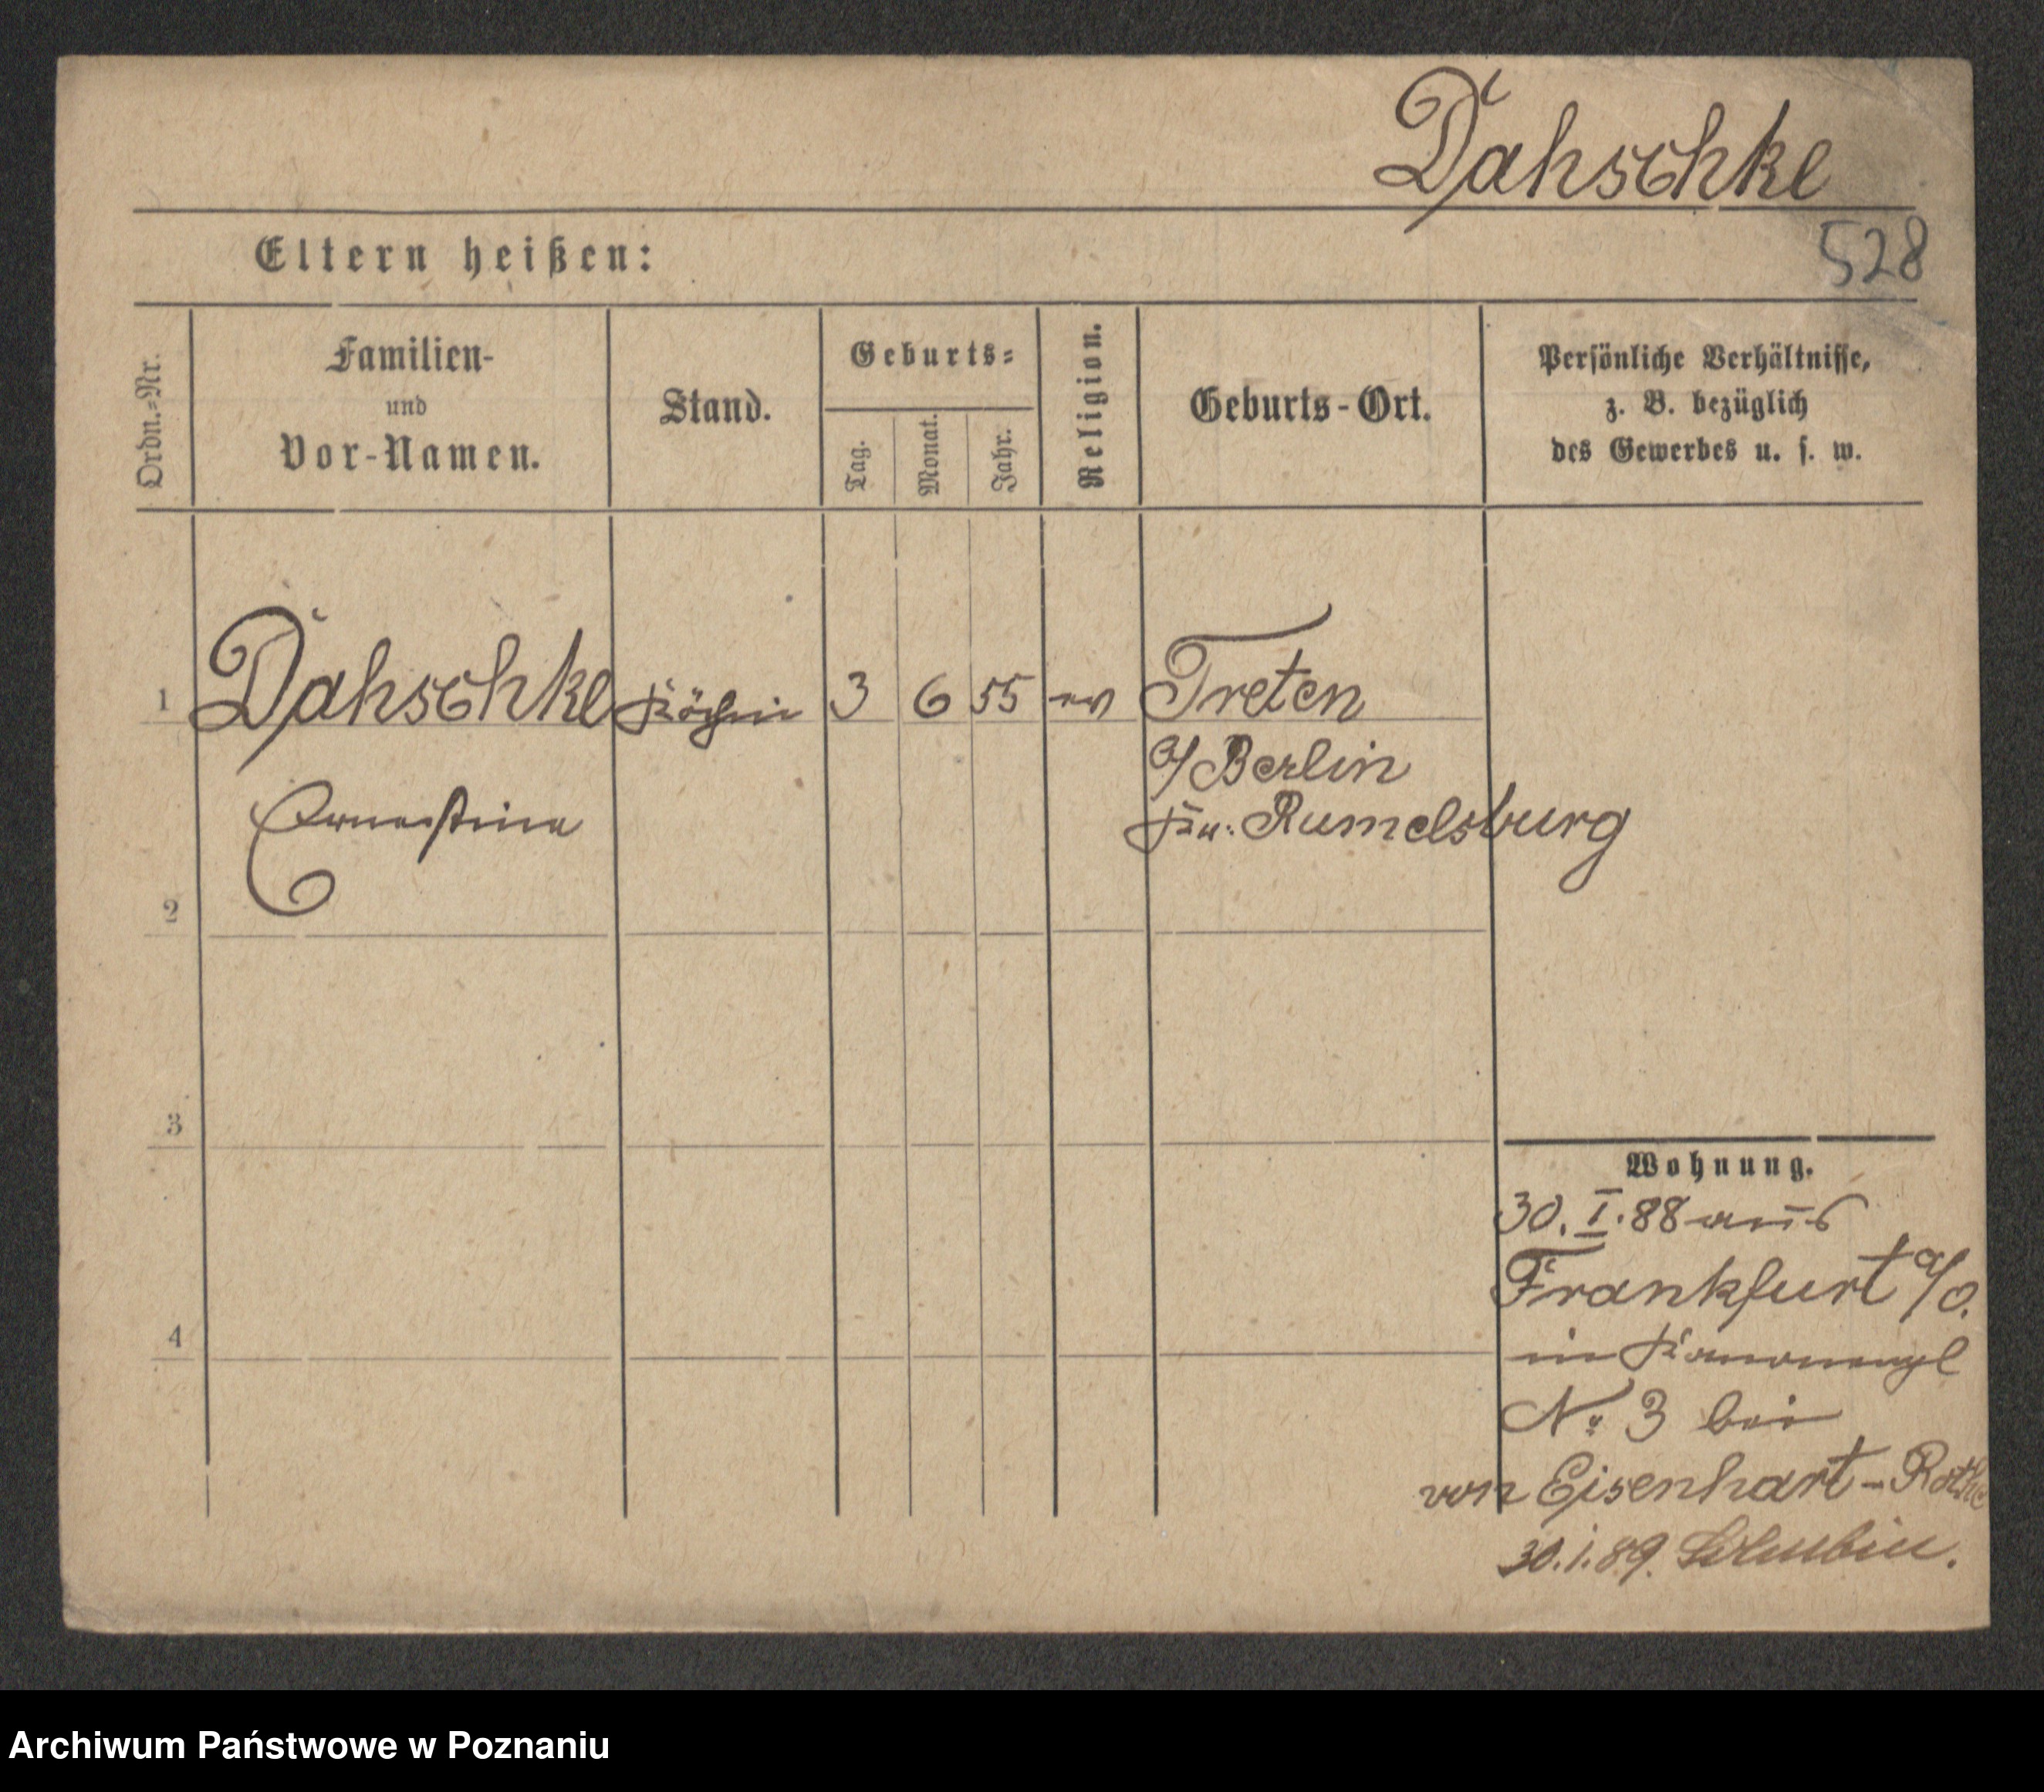 Dahschke
528
Eltern heißen:
Ordn.-Nr.
Familien-
und
Vor-Namen.
Stand.
Geburts-
Tag.
Monat.
Jahr.
Religion.
Geburts-Ort.
Persönliche Verhältnisse,
z. B. bezüglich
des Gewerbes u. s. w.
1 Dahschke Köchin 3 6 55 ev Treten
a/Berlin
Ernestine Kr: Rumelsburg
2
3
Wohnung.
30. I. 88 aus
Frankfurt a/O.
4
in
No 3 bei
von Eisenhart-Rothe
30.1.89. Schubin.
Archiwum Państwowe w Poznaniu